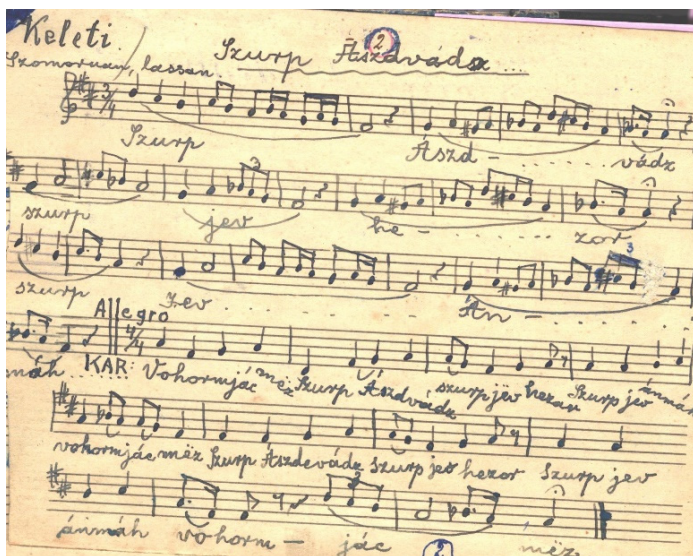 Keleti.
2
Szurp Ászdvádz...
Szomoruan, lassan.
3/4
Szurp Ászd - vádz
3
szurp jev he - zor
3
szurp Jev Án -
Allegro
4/4
máh KAR: Vohormjác mëz Szurp Ászdvádz szurp jev hezor Szurp jev ánmáh
vohormjác mëz Szurp Ászdevádz szurp jev hezor Szurp jev
ánmáh vohorm - jác mëz
2